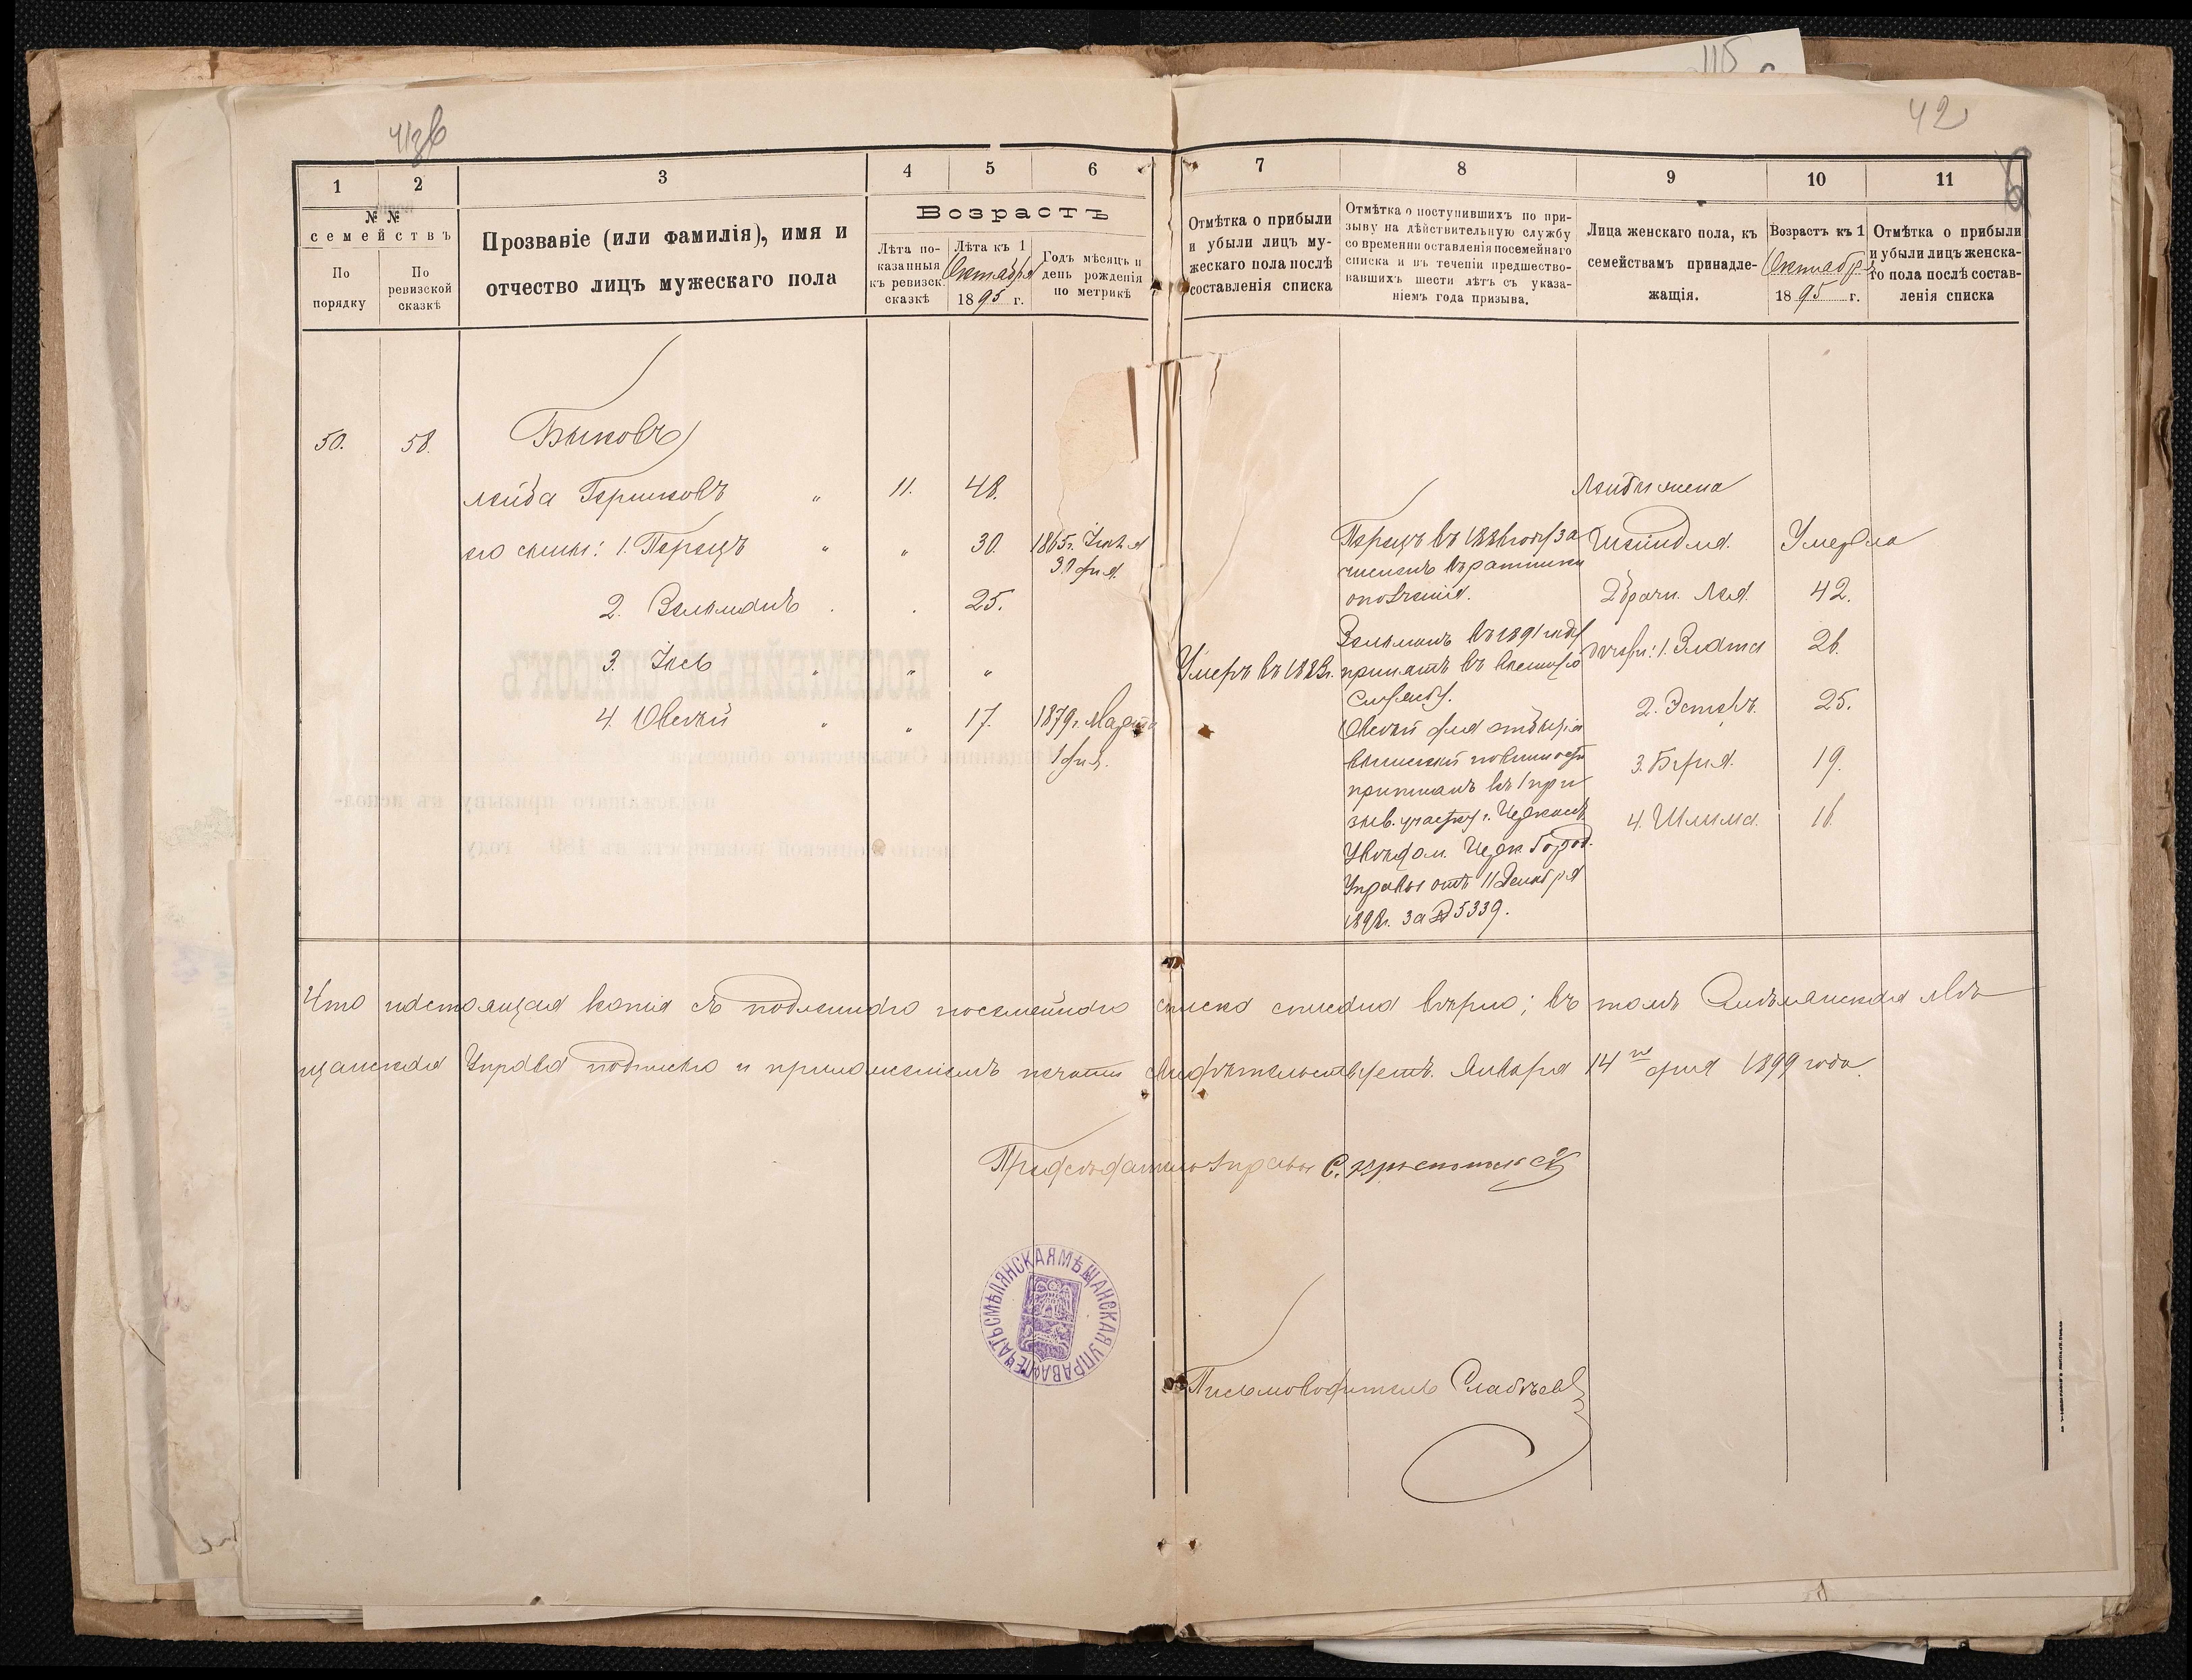 115
42
1 2 3 4 5 6 7 8 9 10 11
№ №
семействъ
По порядку
По ревизской сказкѣ
Прозваніе (или фамилія), имя и
отчество лицъ мужескаго пола
Возрастъ
Лѣта по-
казанныя
къ ревизск.
сказкѣ
Лѣта къ 1
Октября
1895 г.
Годъ мѣсяцъ и
день рожденія
по метрикѣ
Отмѣтка о прибыли
и убыли лицъ му-
жескаго пола послѣ
составленія списка
Отмѣтка о поступившихъ по при-
зыву на дѣйствительную службу
со времени оставленія посемейнаго
списка и въ теченіи предшество-
вавшихъ шести лѣтъ съ указа-
ніемъ года призыва.
Лица женскаго пола, къ
семействамъ принадле-
жащія.
Возрастъ къ 1
Октября
1895 г.
Отмѣтка о прибыли
и убыли лицъ женска-
го пола послѣ состав-
ленія списка
50. 58. Быковъ
Лейба Гершковъ " 11. 48.
его сыны: 1. Перецъ " " 30. 1865 г. Іюня
31 дня.
2. Зельманъ . . 25.
3. Іось " " "
4. Овсей " " 17. 1879 г. Марта
1 дня.
Умеръ въ
Перецъ въ году за
численъ въ ратники
ополченія.
Зельманъ въ 1891 году
принятъ въ военную
службу.
Овсей для отбытія
воинской повинности
приписанъ къ 1 при
зыв. участку г. Черкасъ
Увѣдом. Черк. Город.
Управы отъ 11 Декабря
за № 5339.
Лейбы жена
Шейндля. Умерла
2 брачн. Лея. 42.
дочери: 1. Злата 26.
2. Эстеръ. 25.
3. Бейля. 19.
4. Шлима. 16.
Что настоящая копія съ подлиннаго посемейнаго списка списана вѣрно; въ томъ Смѣлянская Мѣ
щанская Управа подписью и приложеніемъ печати свидѣтельствуетъ. Января 14 го дня 1899 года.
Предсѣдатель Управы С.
ПЕЧАТЬ СМѢЛЯНСКАЯ МѢЩАНСКАЯ УПРАВА
Письмоводитель